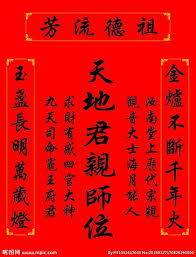 祖德流芳
金爐不斷千年火
汝南堂上歷代宗親
觀音大士海月能人
天地君親師位
求財有感四官大神
九天司命竈王府君
玉盞長明萬歲燈
昵图网 www.nipic.com